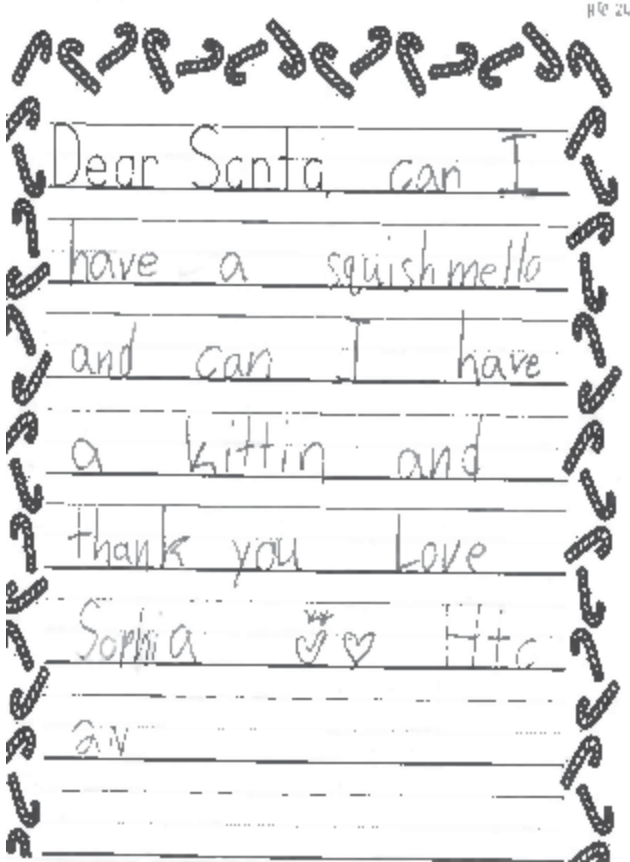 Dear Santa can I
have a squishmello
and can I have
a kittin and
thank you Love
Sophia